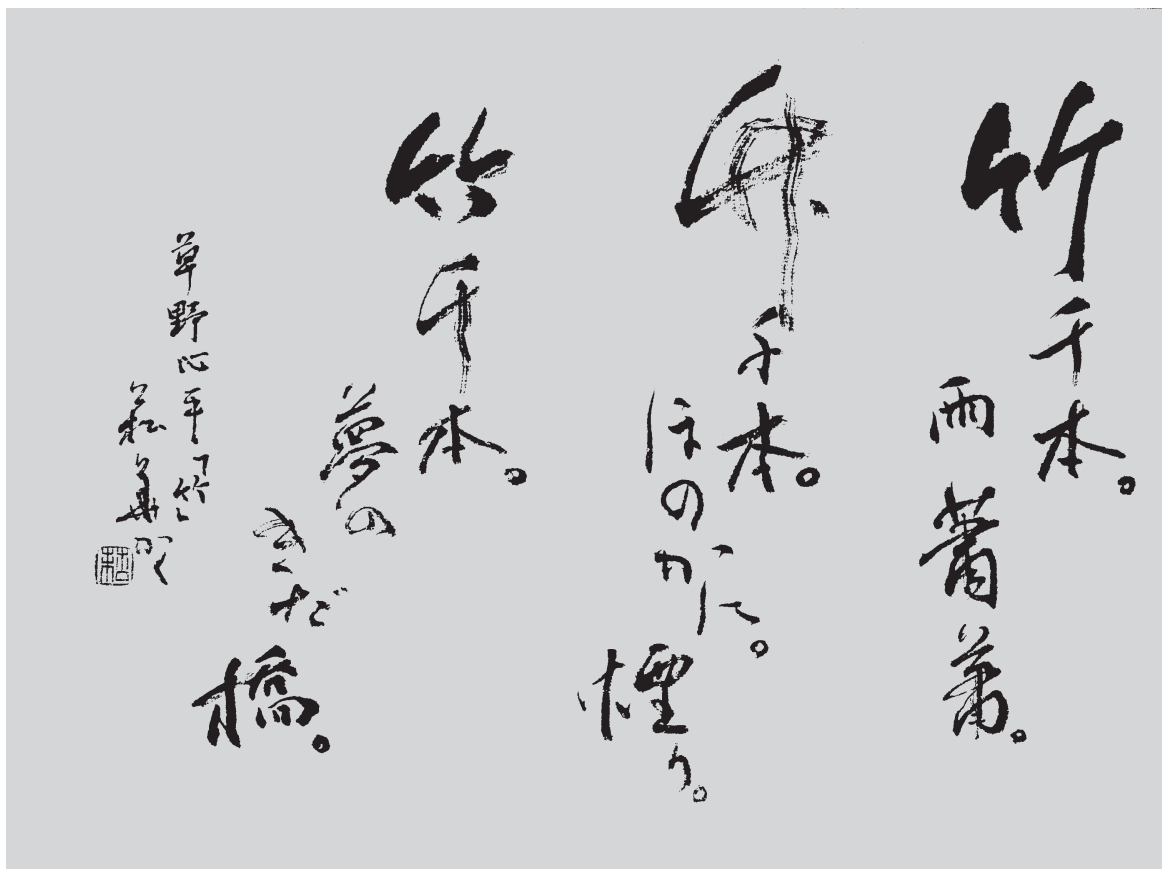 竹千本。
雨蕭蕭。
竹千本。
ほのかに。
煙り。
竹千本。
夢の
きだ
橋。
草野心平「竹」
菘華かく